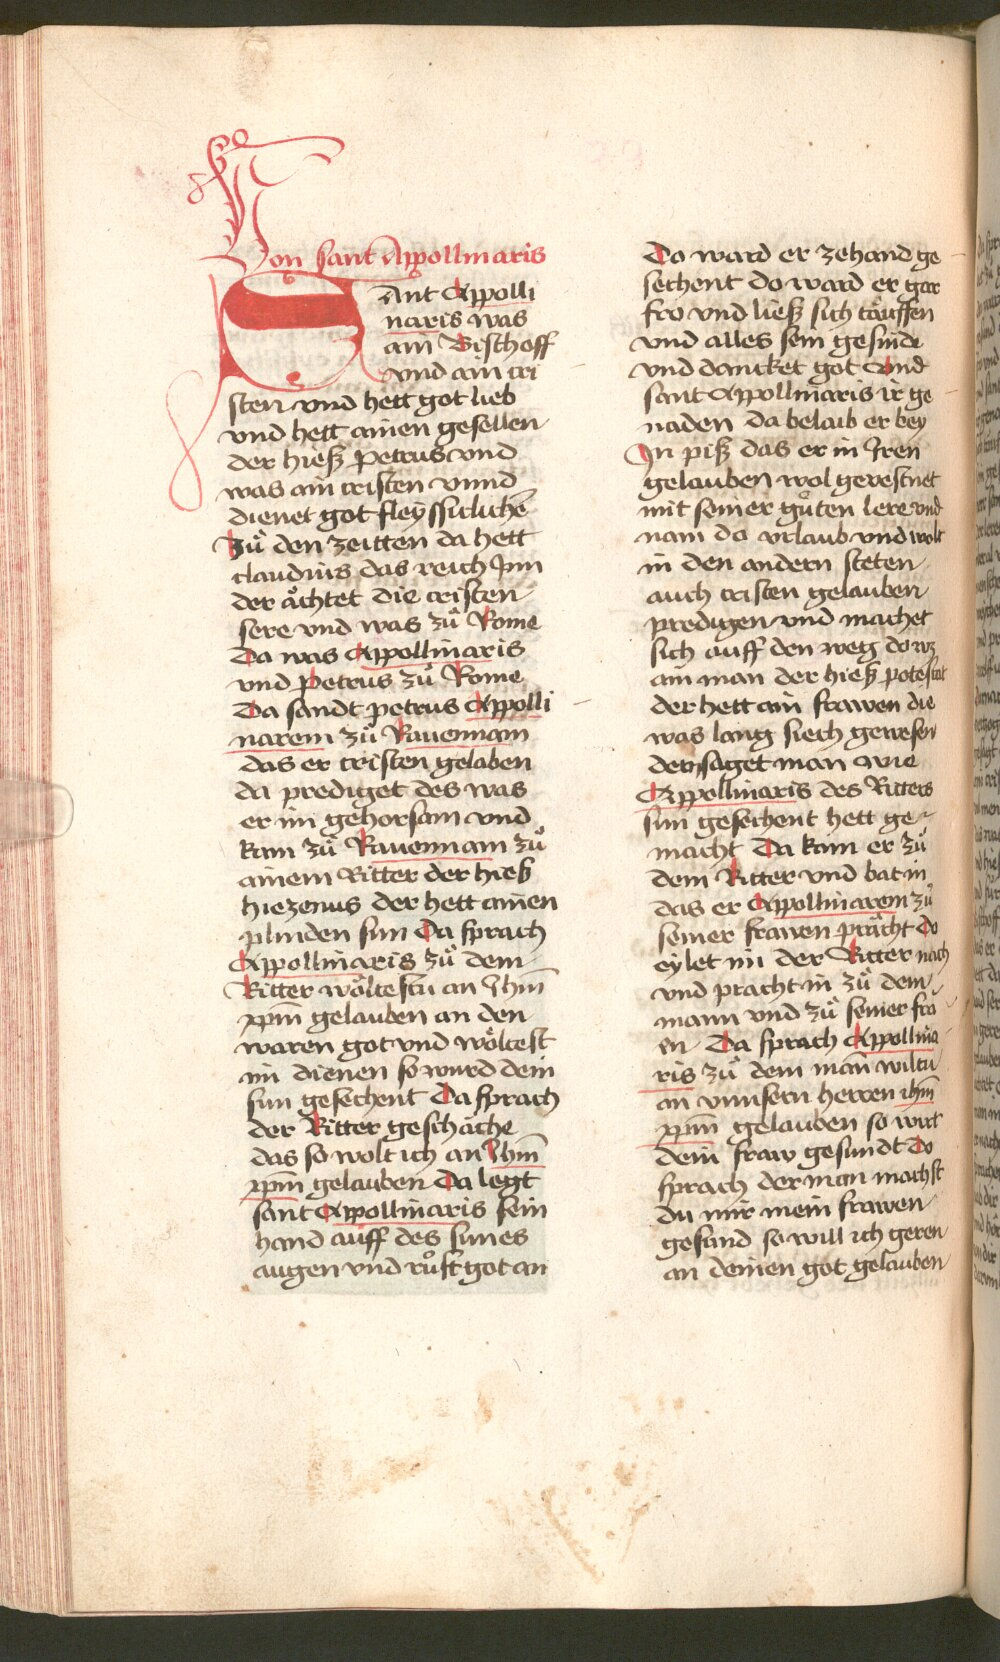 Von sant Appollinaris
Sant Appolli
naris was
ain Bischoff
vnd ain cri
sten vnd hett got lieb
vnd hett ainen gesellen
der hieß Petrus vnd
was ain cristen vnnd
dienet got fleyssiclichen̄
Zů den zeitten da hett
claudius das reich Inn
der åchtet die cristen
sere vnd was zů Rome
Da was Appollinaris
vnd Petrus zů Rome
Da sandt petrus Appolli
narem zů Rauennam
das er cristen gelaben
da prediget des was
er im gehorsam vnd
kam zů Rauennam zů
ainem Ritter der hieß
hiezenus der hett ainen
plinden sun Da sprach
Appollinaris zů dem
Ritter wöltestu an Ihm̄
xpm̄ gelauben an den
waren got vnd wöltest
im dienen so wurd dein
sun gesechent Da sprach
der Ritter geschäche
das so wolt ich an Ihm̄
xpm̄ gelauben Da legt
sant Appollinaris sein
hand auff des sunes
augen vnd růft got an
Do ward er zehand ge
sechent do ward er gar
fro vnd ließ sich tauffen
vnd alles sein gesinde
vnd dancket got Vnd
sant Appollinaris ir ge
naden da belaib er bey
In piß das er in Iren
gelauben wol gevestnet
mit seiner gůten lere vnd
nam do vrlaub vnd wolt
in den andern steten
auch cristen gelauben
predigen vnd machet
sich auff den weg do wz
ain man der hieß potestat
der hett ain frawen die
was lang siech gewesen
dem saget man wie
Appollinaris des Ritters
sun gesechent hett ge
macht Da kam er zů
dem Ritter vnd bat in
das er Appollinarem zů
seiner frauen prächt Do
eylet im der Ritter nach
vnd pracht in zů dem
mann vnd zů seiner fra
en Da sprach Appollina
ris zů dem man̄ wiltu
an vnnsern herren ihm̄
xpm̄ gelauben so wirt
dein fraw gesundt Do
sprach der man machst
du mir mein frawen
gesund so will ich geren
an deinen got gelauben